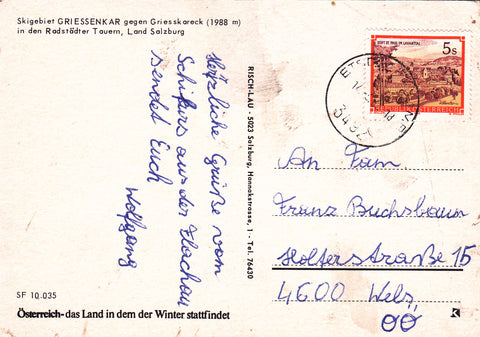 Skigebiet GRIESSENKAR gegen Griesskareck (1988 m)
in den Radstädter Tauern, Land Salzburg
Herzliche Grüße vom
Schikurs aus der Flachau
sendet Euch
Wolfgang
RISCH-LAU - 5023 Salzburg, Hannakstrasse, 1 - Tel. 76420
STIFT ST. PAUL IM LAVANTTAL
5s
REPUBLIK ÖSTERREICH
An Fam.
Franz Buchsbaum
Holterstraße 15
4600 Wels
OÖ
SF 10.035
Österreich-das Land in dem der Winter stattfindet
K